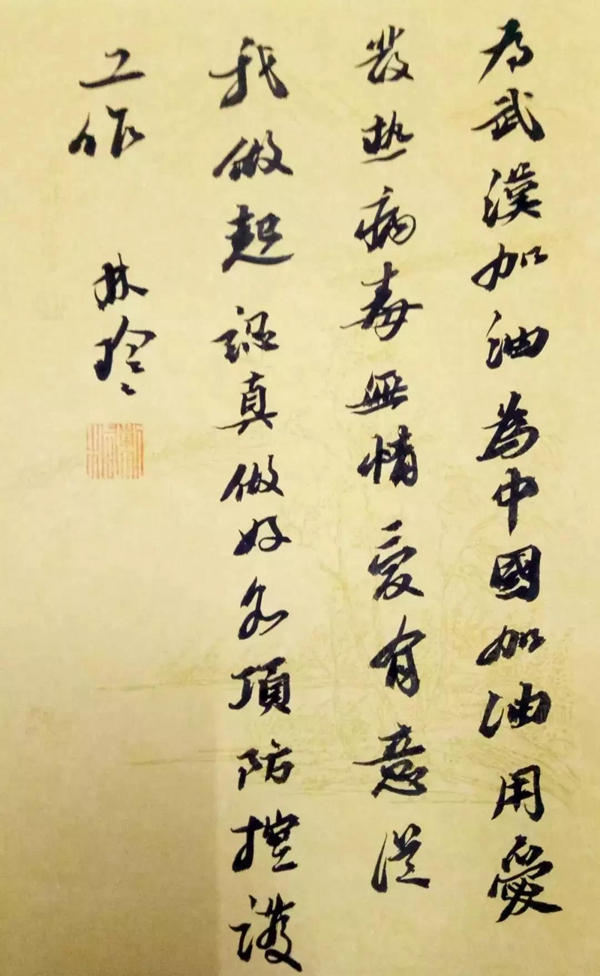 为武漢加油為中國加油用愛
發热病毒無情爱有意從
我做起認真做好各項防控護
工作
林玲